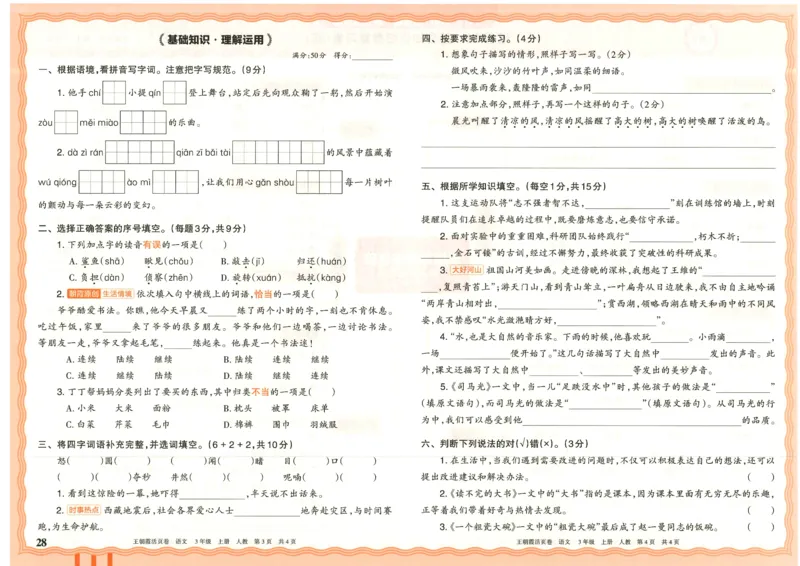 《基础知识·理解运用》
满分:50分 得分:
一、根据语境,看拼音写字词。注意把字写规范。(9分)
1. 他手 chí 小提 qín 登上舞台,站定后先向观众鞠了一躬,然后开始演
zòu měi miào 的乐曲。
2. dà zì rán qiān zī bǎi tài 的风景中蕴藏着
wú qióng ào mì ,让我们用心 gǎn shòu 每一片树叶
的颤动与每一朵云彩的变幻。
二、选择正确答案的序号填空。(每题3分,共9分)
1. 下列加点字的读音有误的一项是( )
A. 鲨鱼(shā) 瞅见(chǒu) B. 敲击(jī) 归还(huán)
C. 负担(dàn) 侦察(zhēn) D. 旋转(xuán) 抵抗(kàng)
2. 朝霞原创 生活情境 依次填入句中横线上的词语,恰当的一项是( )
爷爷酷爱书法。你瞧,他今天早晨又 练了两个小时的字,一刻也不肯休息。
吃过午饭,家里 来了爷爷的很多朋友。爷爷和他们一边喝茶,一边讨论书法。
等朋友一走,爷爷又拿起毛笔, 练起来。他真是一个书法迷!
A. 连续 陆续 继续 B. 陆续 连续 继续
C. 连续 继续 陆续 D. 陆续 继续 连续
3. 丁丁帮妈妈分类列出了要买的东西,其中归类不当的一项是( )
A. 小米 大米 面粉 B. 枕头 被罩 床单
C. 白菜 芹菜 毛巾 D. 棉裤 围巾 羽绒服
三、将四字词语补充完整,并选词填空。(6+2+2,共10分)
怒( )圆( ) ( )闻( )睹 目( )口( )
( )( )夺秒 井然( )( ) 呢喃( )( )
1. 看到这惊险的一幕,她吓得 ,半天说不出话来。
2. 时事热点 西藏地震后,社会各界爱心人士 地奔赴灾区,与时间赛
跑,为生命护航。
28 王朝霞活页卷 语文 3年级 上册 人教 第3页 共4页
四、按要求完成练习。(4分)
1. 想象句子描写的情形,照样子写一写。(2分)
微风吹来,沙沙的竹叶声,如同温柔的细语。
一场暴雨袭来,轰隆隆的雷声,如同 。
2. 注意加点部分,照样子,再写一个这样的句子。(2分)
晨光叫醒了清凉的风,清凉的风摇醒了高大的树,高大的树唤醒了活泼的鸟。
五、根据所学知识填空。(每空1分,共15分)
1. 这支运动队将“志不强者智不达, ”刻在训练馆的墙上,时刻
提醒队员们在追求卓越的过程中,既要磨炼意志,也要信守承诺。
2. 面对实验中的重重困难,科研团队始终践行“ ,朽木不折;
,金石可镂”的古训,经过不懈努力,最终收获了突破性的科研成果。
3. 大好河山 祖国山河美如画。走进傍晚的深林,我想起了王维的“
,复照青苔上”;游天门山,看到青山耸立,一叶扁舟从日边驶来,我不由自主地吟诵
“两岸青山相对出, ”;赏西湖,领略西湖在晴天和雨中的不同风
姿,我不禁感叹“水光潋滟晴方好, ”。
4. “水,也是大自然的音乐家。下雨的时候,他喜欢玩 。小雨滴 ,
一场 便开始了。”这几句话描写了大自然中 发出的声音。此
外,课文还描写了大自然中 、 等发出的美妙声音。
5. 《司马光》一文中,当一儿“足跌没水中”时,其他孩子的做法是“ ”
(填原文语句),而司马光的做法是“ ”(填原文语句)。从司马光的行
为中,我们可以感受到他 的品质。
六、判断下列说法的对(√)错(×)。(3分)
1. 在生活中,当我们遇到需要改进的问题时,不仅可以积极表达自己的想法,还可以
提出改进建议和解决办法。 ( )
2. 《读不完的大书》一文中的“大书”指的是课本,因为课本里面有无穷无尽的乐趣,
正等着我们带着好奇与热情去发现。 ( )
3. 《一个粗瓷大碗》一文中的“粗瓷大碗”最后成了赵一曼同志的饭碗。 ( )
王朝霞活页卷 语文 3年级 上册 人教 第4页 共4页